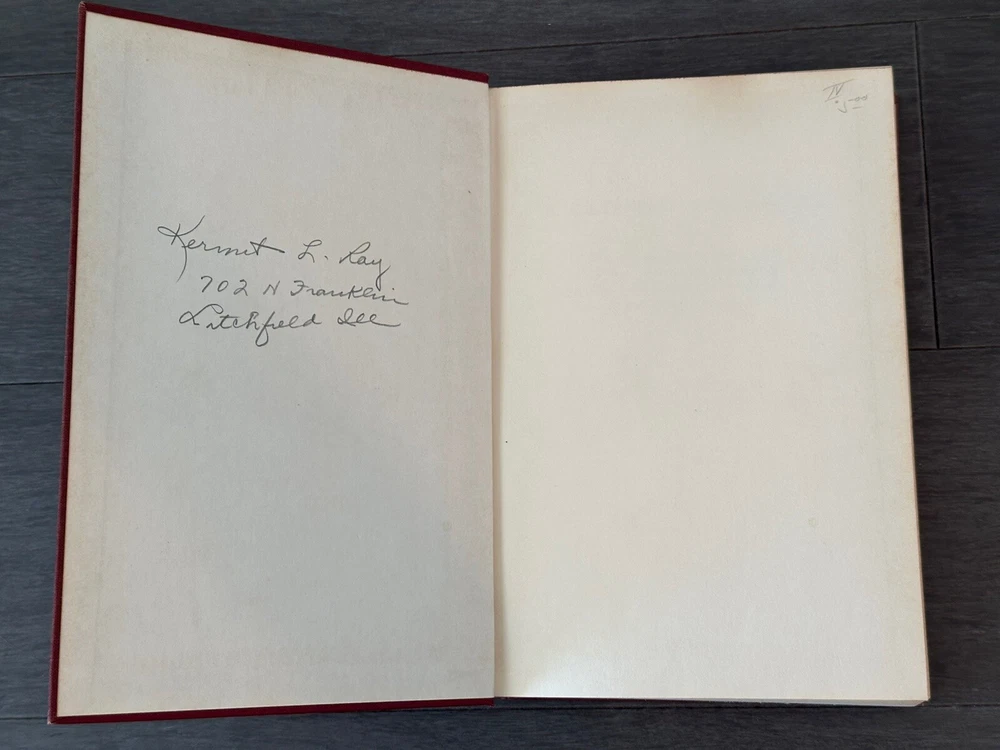 Kermit L. Ray
702 N Franklin
Litchfield Ill
IV